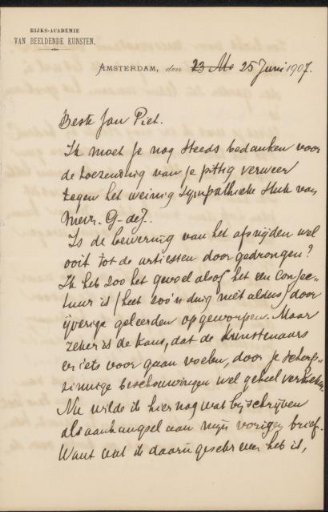 RIJKS-ACADEMIE
VAN BEELDENDE KUNSTEN.
AMSTERDAM, den 23 Me 25 Juni 1907.
Beste Jan Piet.
Ik moet je nog steeds bedanken voor
de toezending van je pittig verweer
tegen het weinig sympathieke stuk van
Mevr. G-de J.
Is de bewering van het afsnijden wel
ooit tot de artiesten doorgedrongen?
Ik heb zoo het gevoel alsof het een conjec-
tuur is (heet zoo'n ding niet aldus) door
ijverige geleerden opgeworpen. Maar
zeker is de kans, dat de kunstenaars
er iets voor gaan voelen, door je scherp-
zinnige beschouwingen wel geheel verkeken.
Nu wilde ik hier nog wat bijschrijven
als aanhangsel aan mijn vorigen brief.
Want wat ik daarin geschreven heb is,